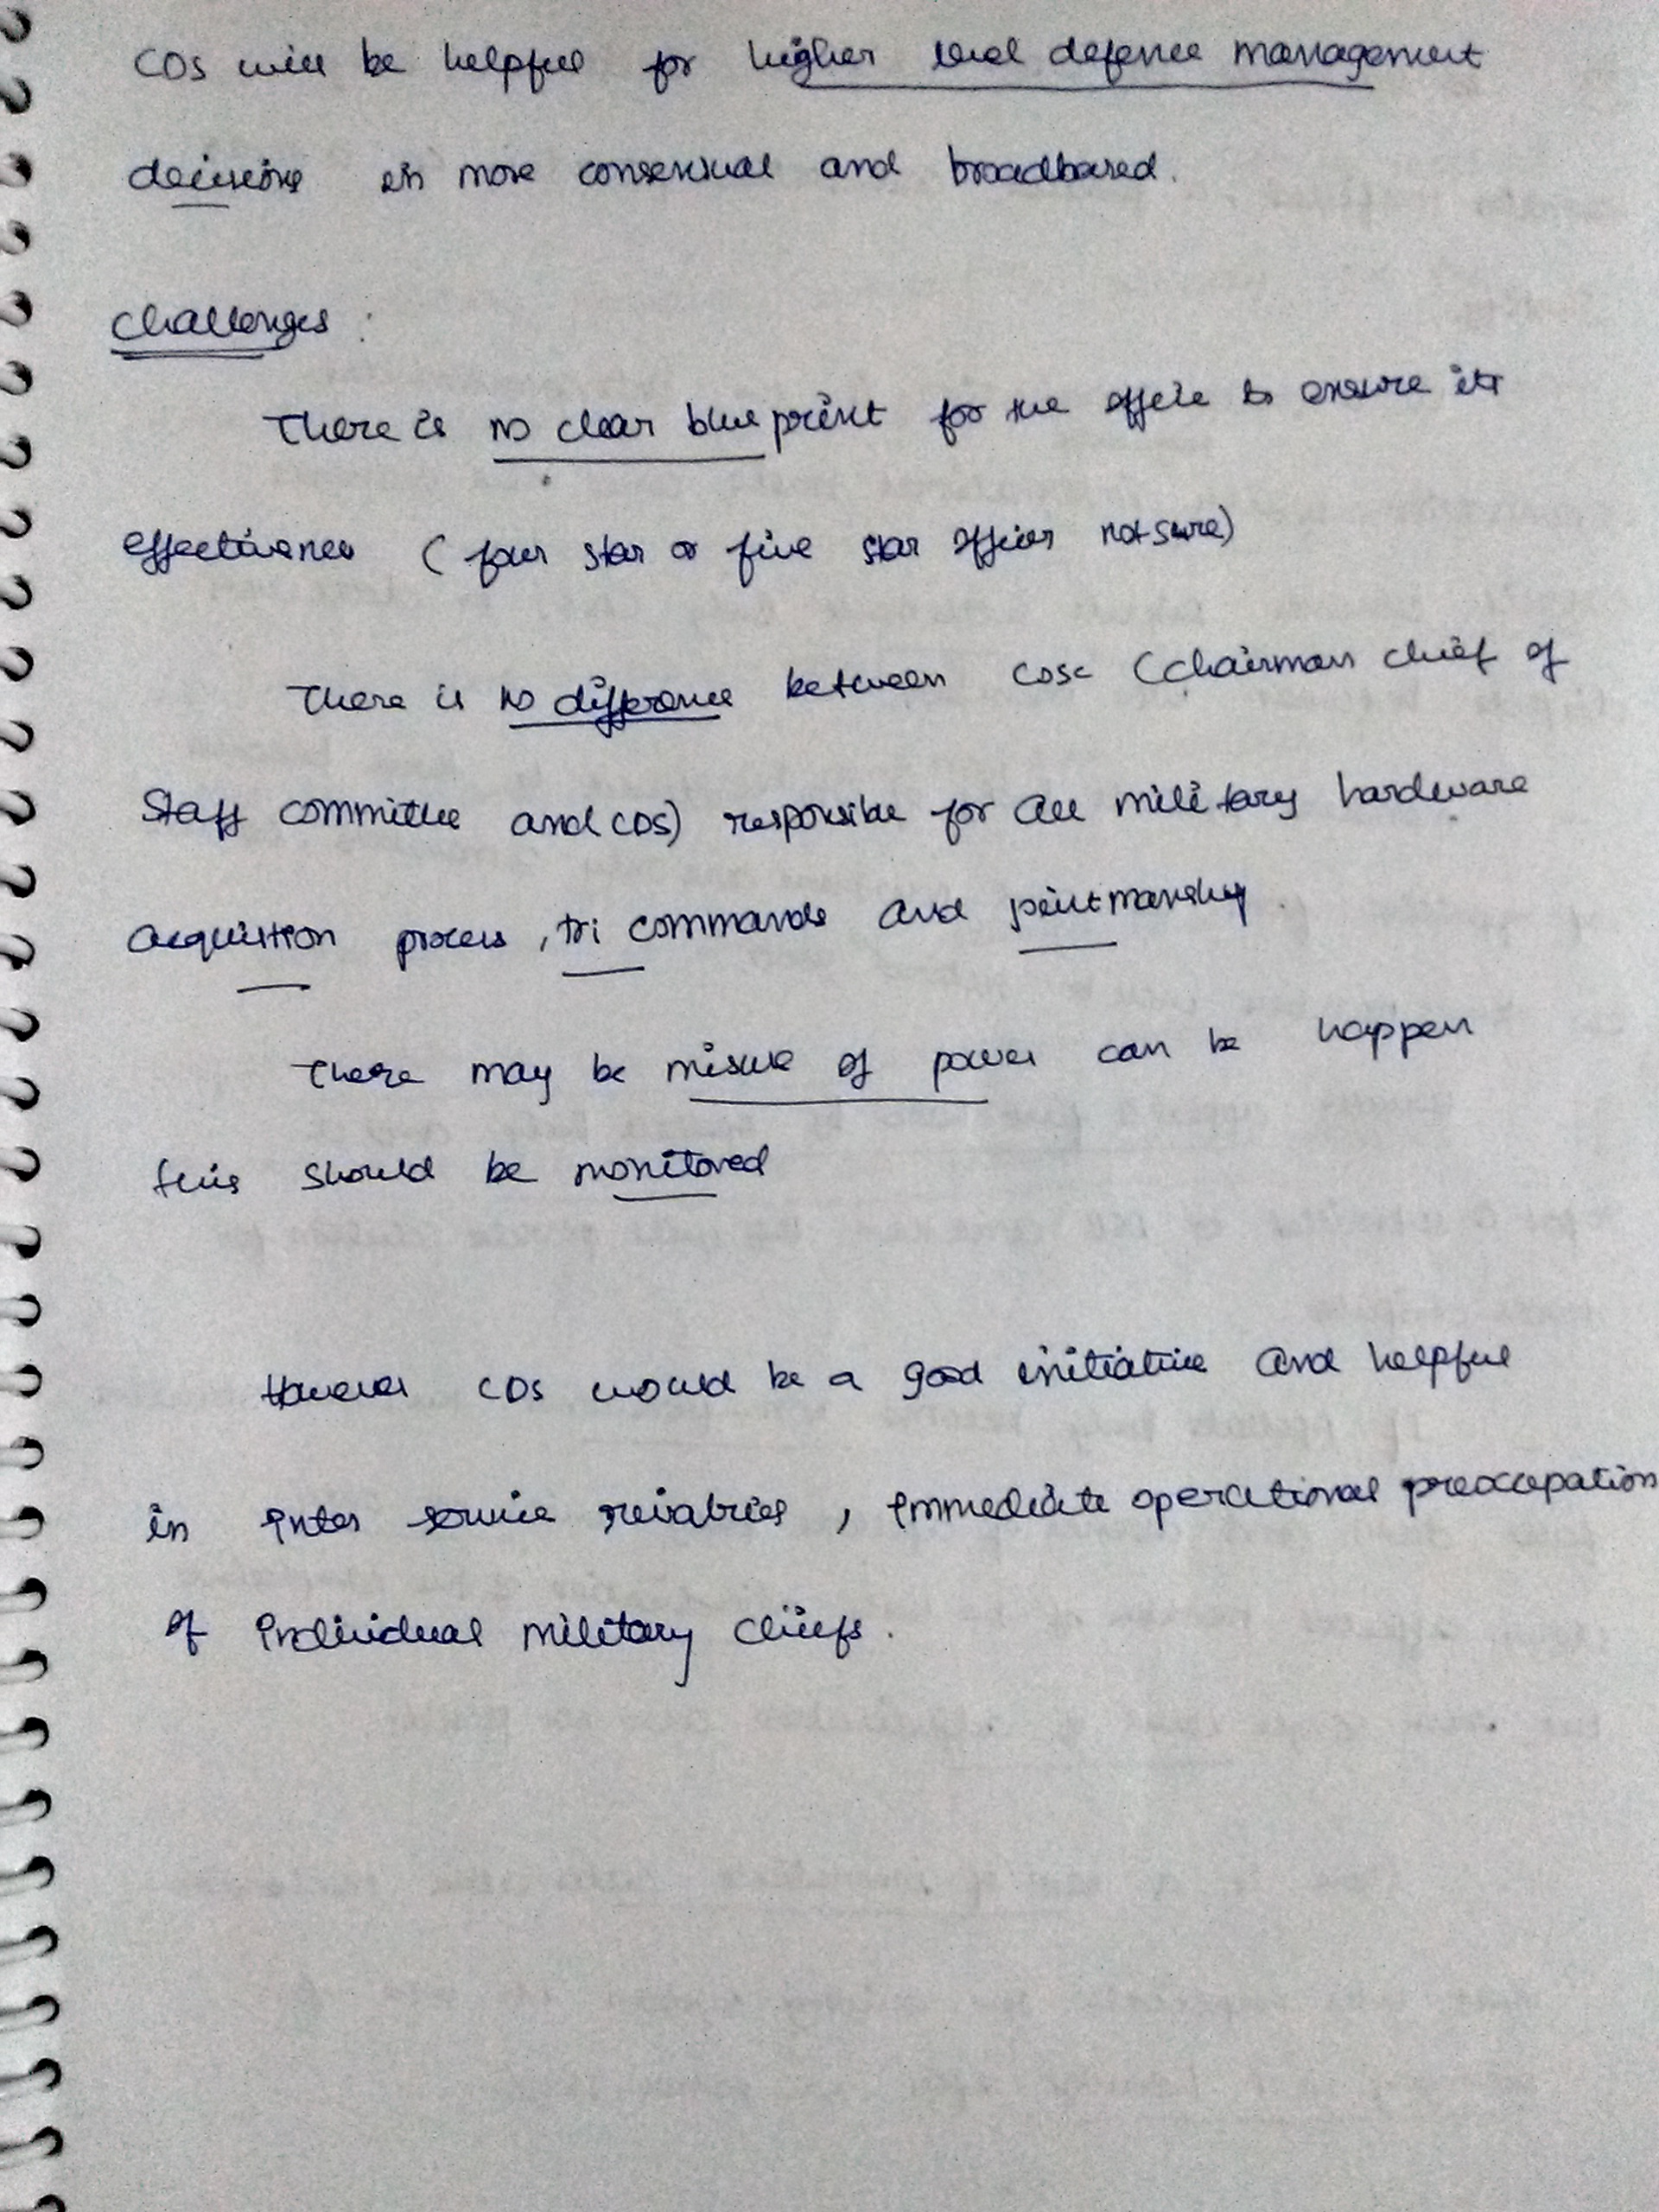 CDS will be helpful for higher level defence management
decisions in more consensual and broadbased.
Challenges :
There is no clear blue print for the office to ensure its
effectiveness ( four star or five star officer not sure)
There is no difference between COSC (Chairman chief of
Staff committee and CDS) responsible for all military hardware
acquisition process, tri commands and jointmanship.
There may be misuse of power can be happen
this should be monitored
However CDS would be a good initiative and helpful
in inter service rivalries , immediate operational preoccupation
of individual military chiefs.